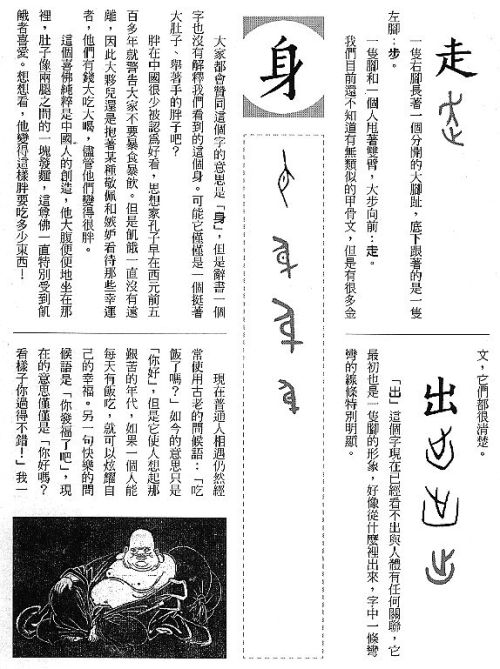 走
一隻右腳長著一個分開的大腳趾，底下跟著的是一隻
左腳：步。
一隻腳和一個人甩著雙臂，大步向前：走。
我們目前還不知道有無類似的甲骨文，但是有很多金
文，它們都很清楚。
出
「出」這個字現在已經看不出與人體有任何關聯，它
最初也是一隻腳的形象，好像從什麼裡出來，字中一條彎
彎的線條特別明顯。
身
大家都會贊同這個字的意思是「身」，但是辭書一個
字也沒有解釋我們看到的這個身。可能它僅僅是一個挺著
大肚子、舉著手的胖子吧？
胖在中國很少被認爲好看，思想家孔子早在西元前五
百多年就警告大家不要暴食暴飲。但是飢餓一直沒有遠
離，因此大夥兒還是抱著某種敬佩和嫉妒看待那些幸運
者，他們有錢大吃大喝，儘管他們變得很胖。
這個喜佛純粹是中國人的創造，他大腹便便地坐在那
裡，肚子像兩腿之間的一塊發麵，這尊佛一直特別受到飢
餓者喜愛。想想看，他變得這樣胖要吃多少東西！
現在普通人相遇仍然經
常使用古老的問候語：「吃
飯了嗎？」如今的意思只是
「你好」，但是它使人想起那
艱苦的年代，如果一個人能
每天有飯吃，就可以炫耀自
己的幸福。另一句快樂的問
候語是「你發福了吧」，現
在的意思僅僅是「你好嗎？
看樣子你過得不錯！」我一